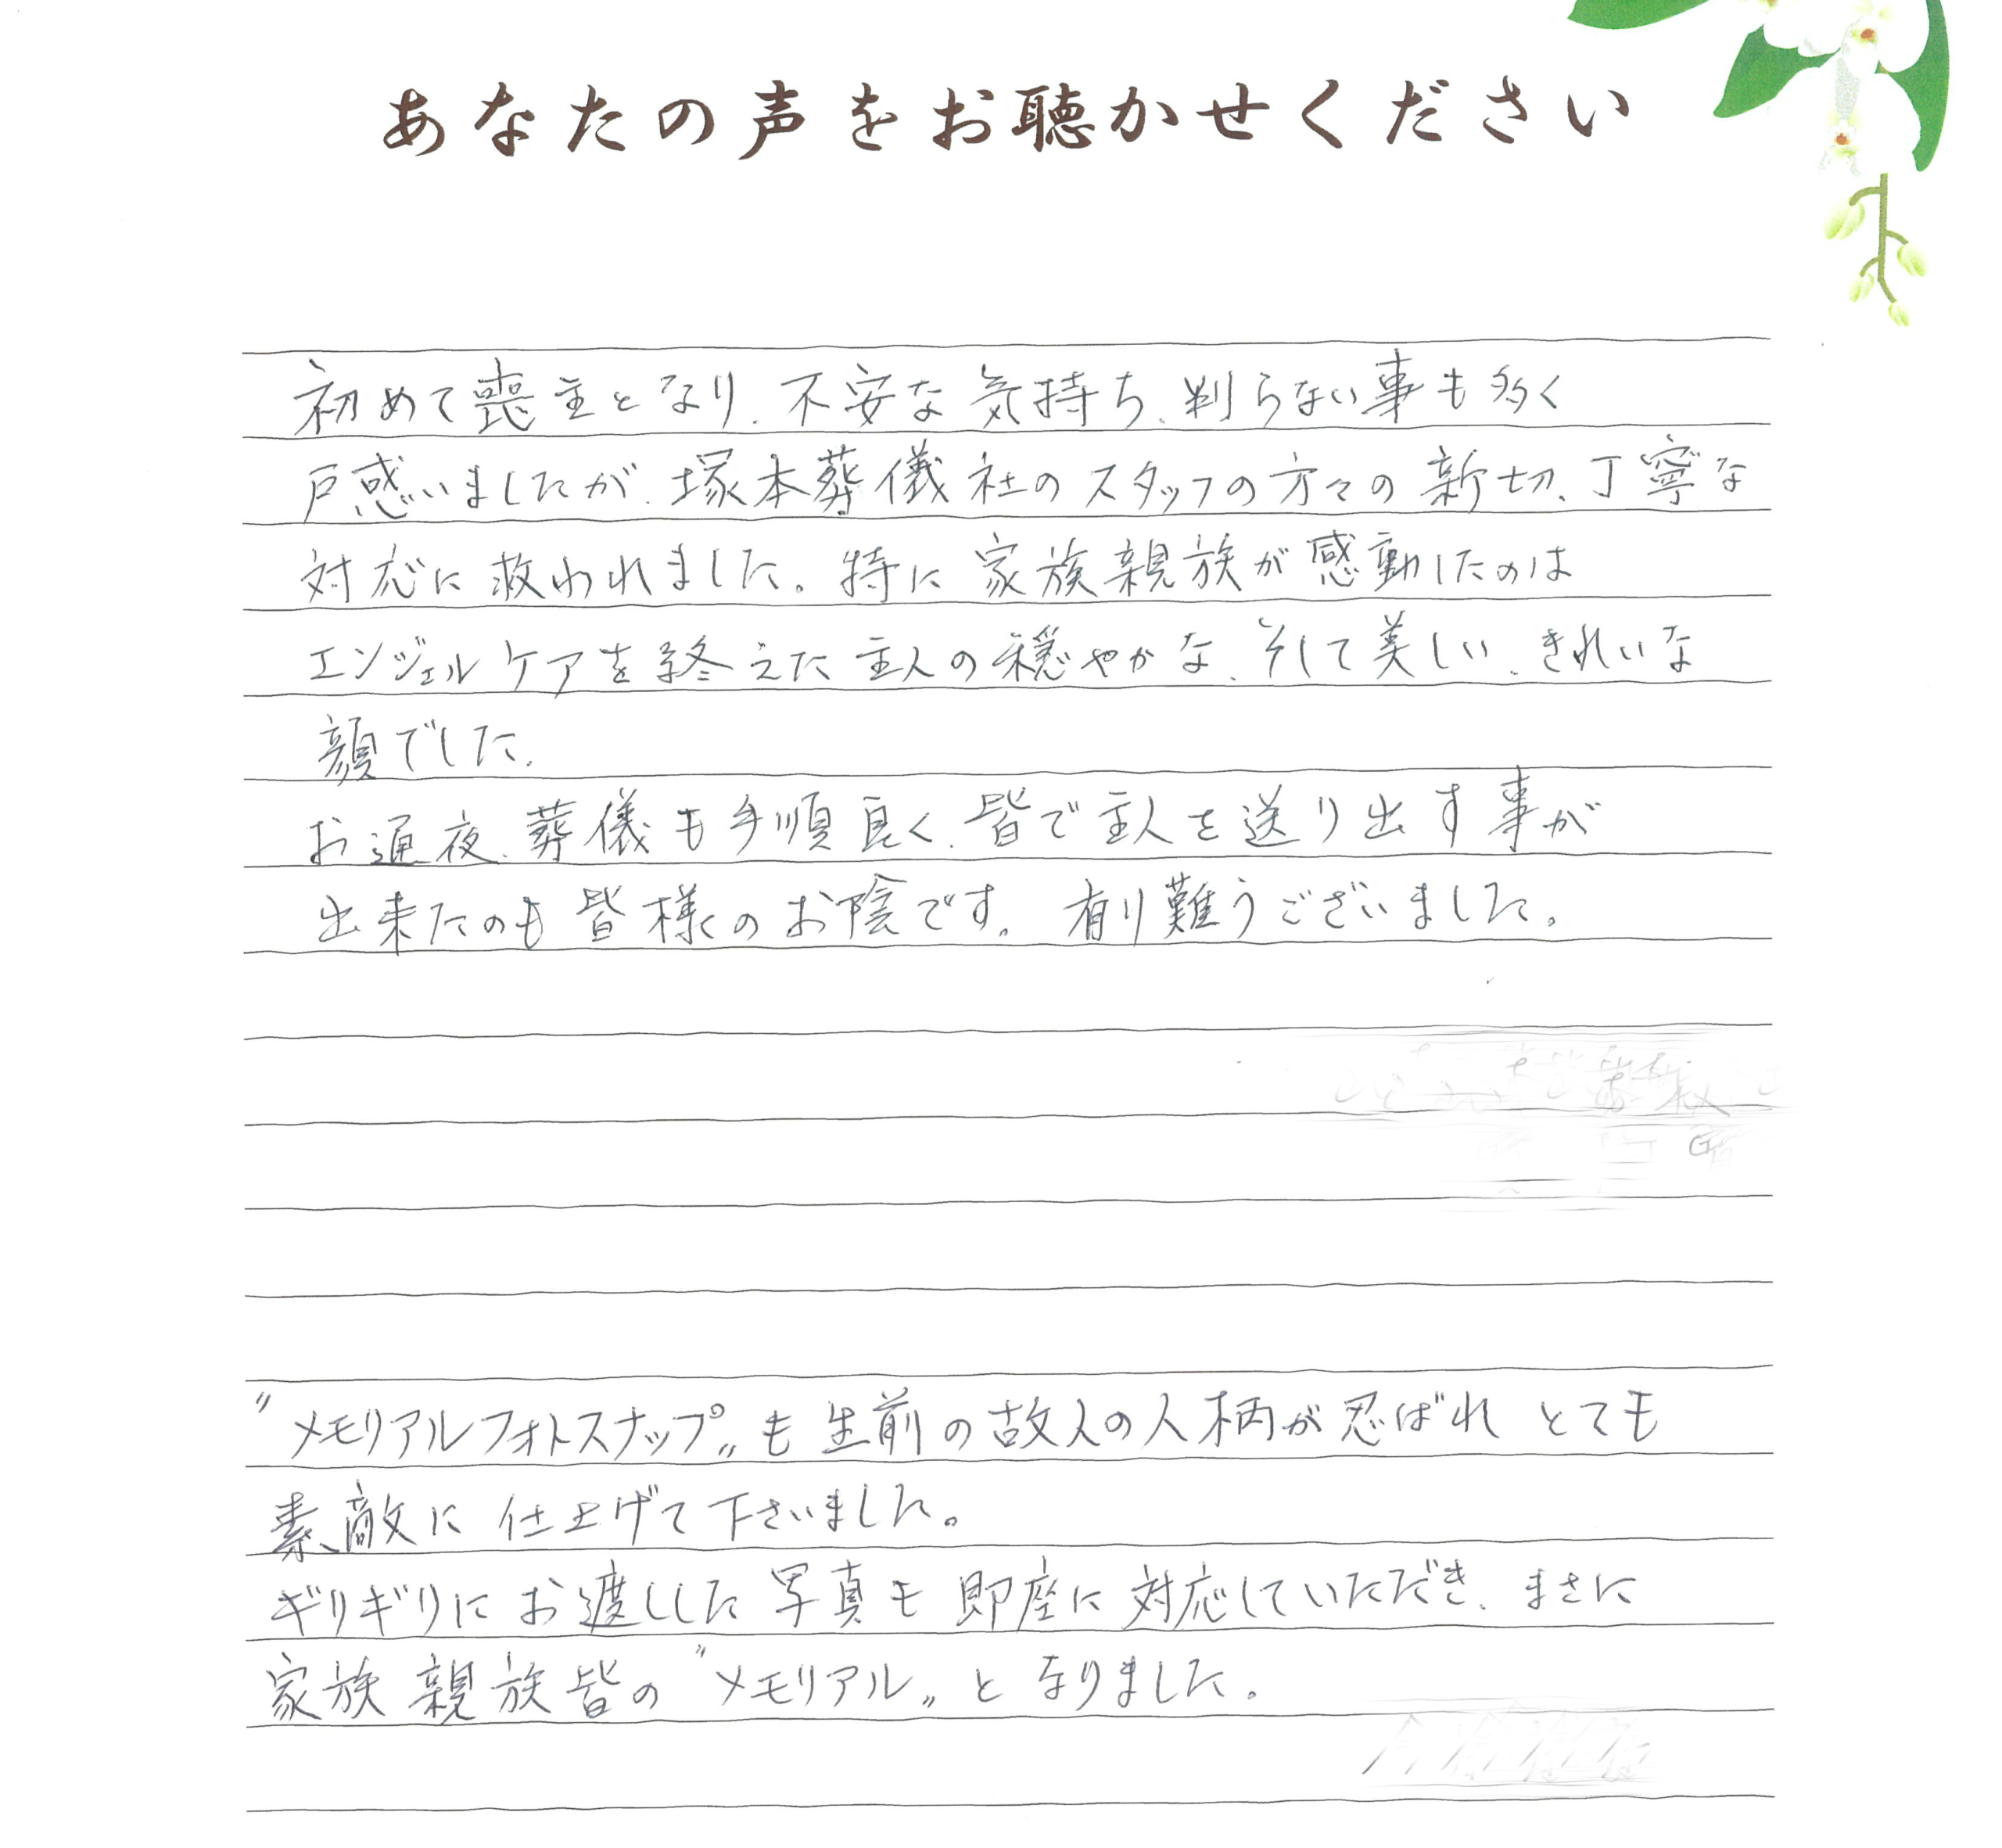 あなたの声をお聴かせください
初めて喪主となり、不安な気持ち、判らない事も多く
戸惑いましたが、塚本葬儀社のスタッフの方々の新切、丁寧な
対応に救われました。特に家族親族が感動したのは
エンジェルケアを終えた主人の穏やかな、そして美しい、きれいな
顔でした。
お通夜、葬儀も手順良く、皆で主人を送り出す事が
出来たのも皆様のお陰です。有り難うございました。
〃メモリアルフォトスナップ〃も生前の故人の人柄が忍ばれとても
素敵に仕上げて下さいました。
ギリギリにお渡しした写真も即座に対応していただき、まさに
家族親族皆の〃メモリアル〃となりました。